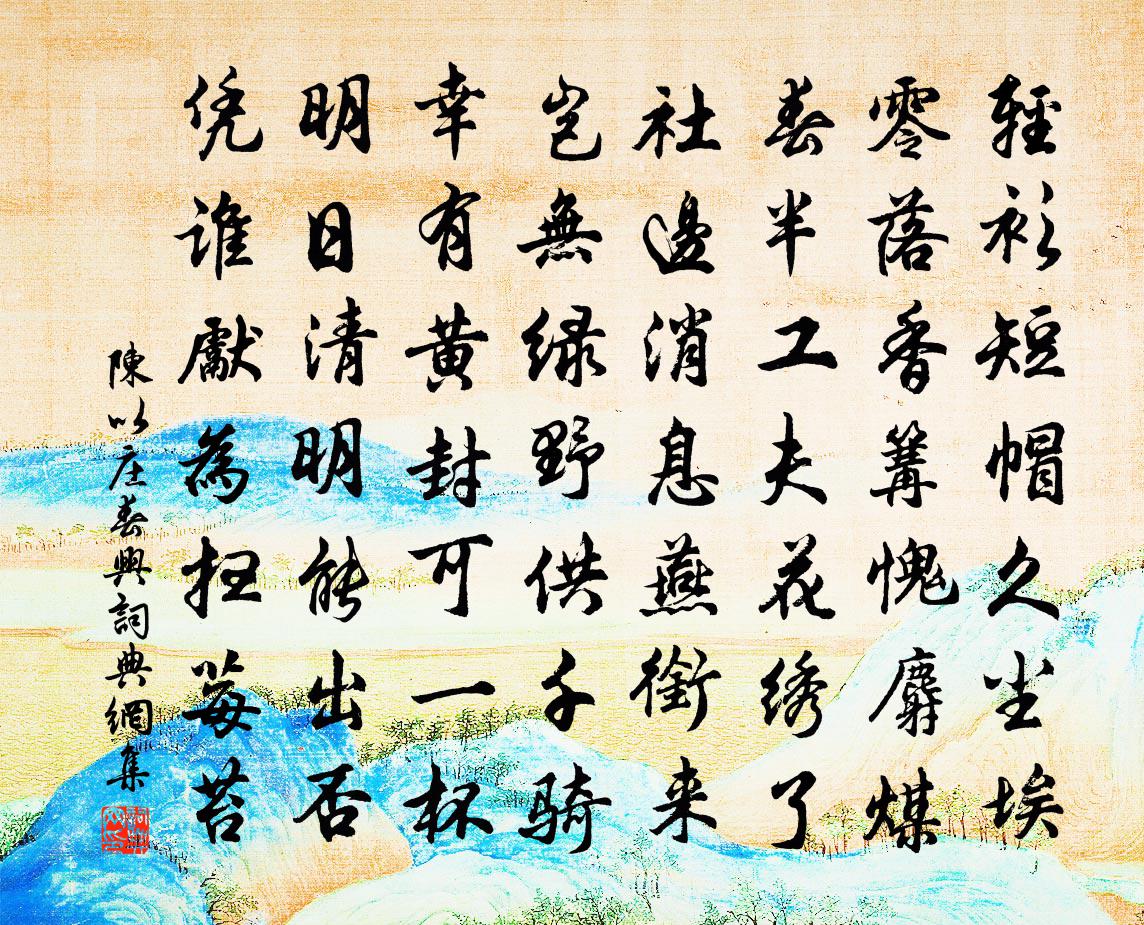 輕衫短帽久尘埃
零落香篝愧麝煤
春半工夫花绣了
社邊消息燕銜来
岂無緑野供千骑
幸有黄封可一杯
明日清明能出否
凭谁獻為扫莓苔
陳以庄春興詞典網集